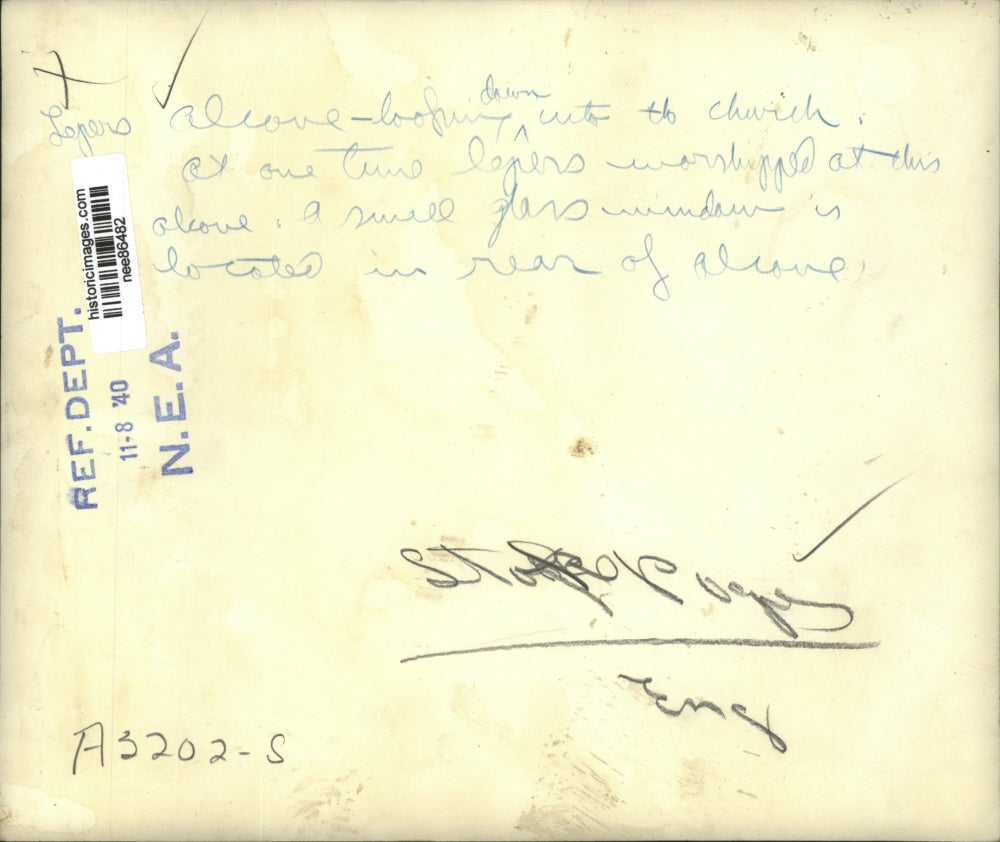 Lepers alcove-looking down into th church.
at one time lepers worshipped at this
alcove. A small glass window is
located in rear of alcove.
historicimages.com
nee86482
REF. DEPT.
11-8 '40
N.E.A.
Stoke Poges
Eng
A3202-S